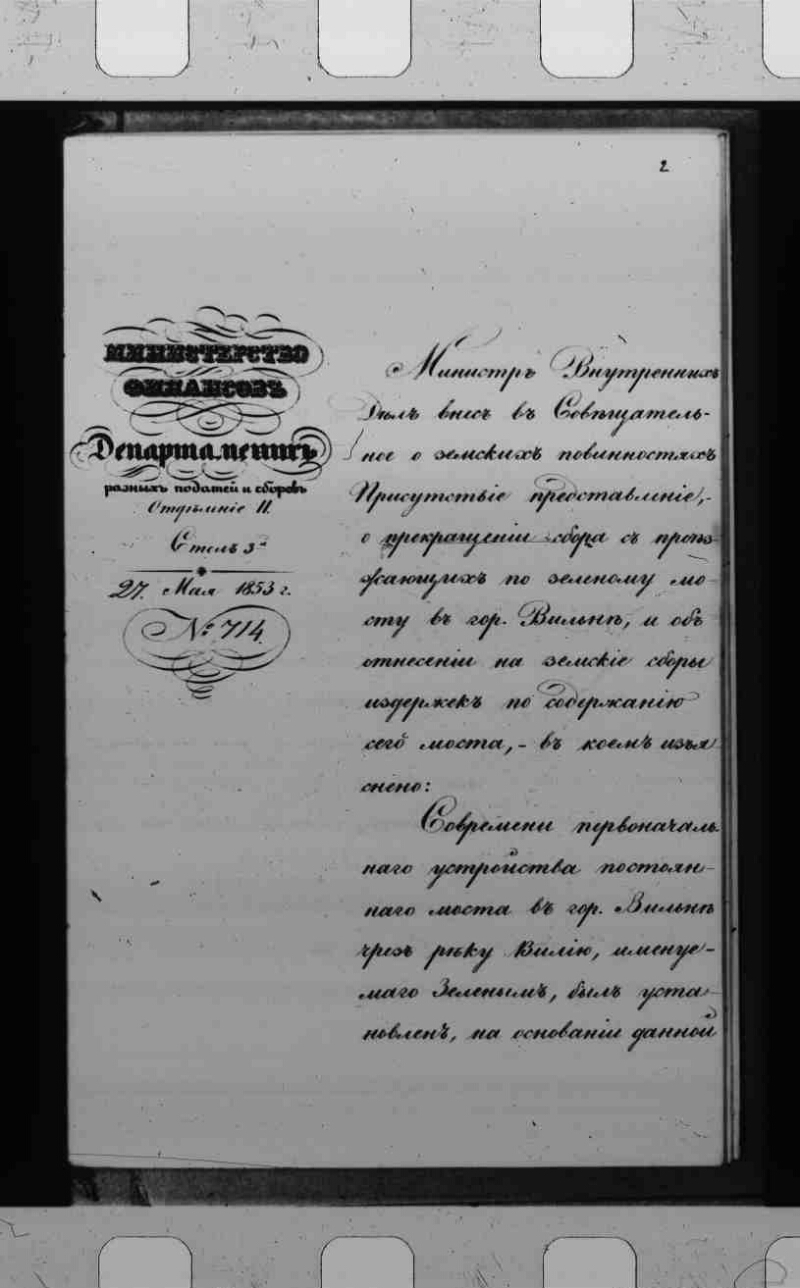 2
МИНИСТЕРСТВО
ФИНАНСОВЪ
Департаментъ
разныхъ податей и сборовъ
Отдѣленіе II.
Столъ 3й
27 Мая 1853 г.
№ 714
Министръ Внутреннихъ
Дѣлъ внесъ въ Совѣщатель-
ное о земскихъ повинностяхъ
Присутствіе представленіе,-
о прекращеніи сбора съ проѣз
жающихъ по зеленому мо
сту въ гор. Вильнѣ, и объ
отнесеніи на земскіе сборы
издержекъ по содержанію
сего моста,- въ коемъ изъя
снено:
Современи первоначаль
наго устройства постоян-
наго моста въ гор. Вильнѣ
чрезъ рѣку Вилію, именуе-
маго Зеленымъ, былъ уста
новленъ, на основаніи данной